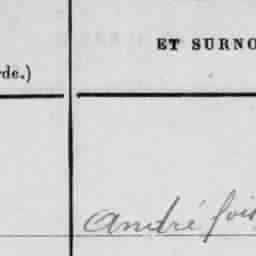 ET SURNO
rde.)
André fois